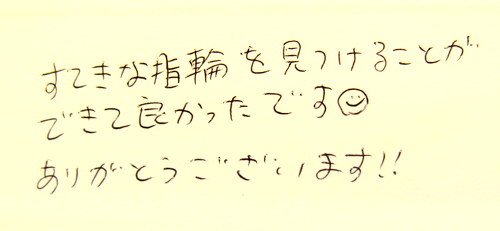 すてきな指輪を見つけることが
できて良かったです☺
ありがとうございます!!